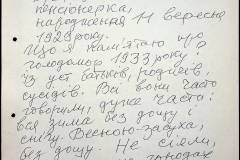 пенсіонерка,
народжена 11 вересня
1929 року.
Що я пам'ятаю про
голодомор 1933 року?
Із уст батьків, родичів,
сусідів. Всі вони часто
говорили, дуже часто:
вся зима без дощу і
снігу. Весною-засуха,
без дощу. Не сіяли,
городах